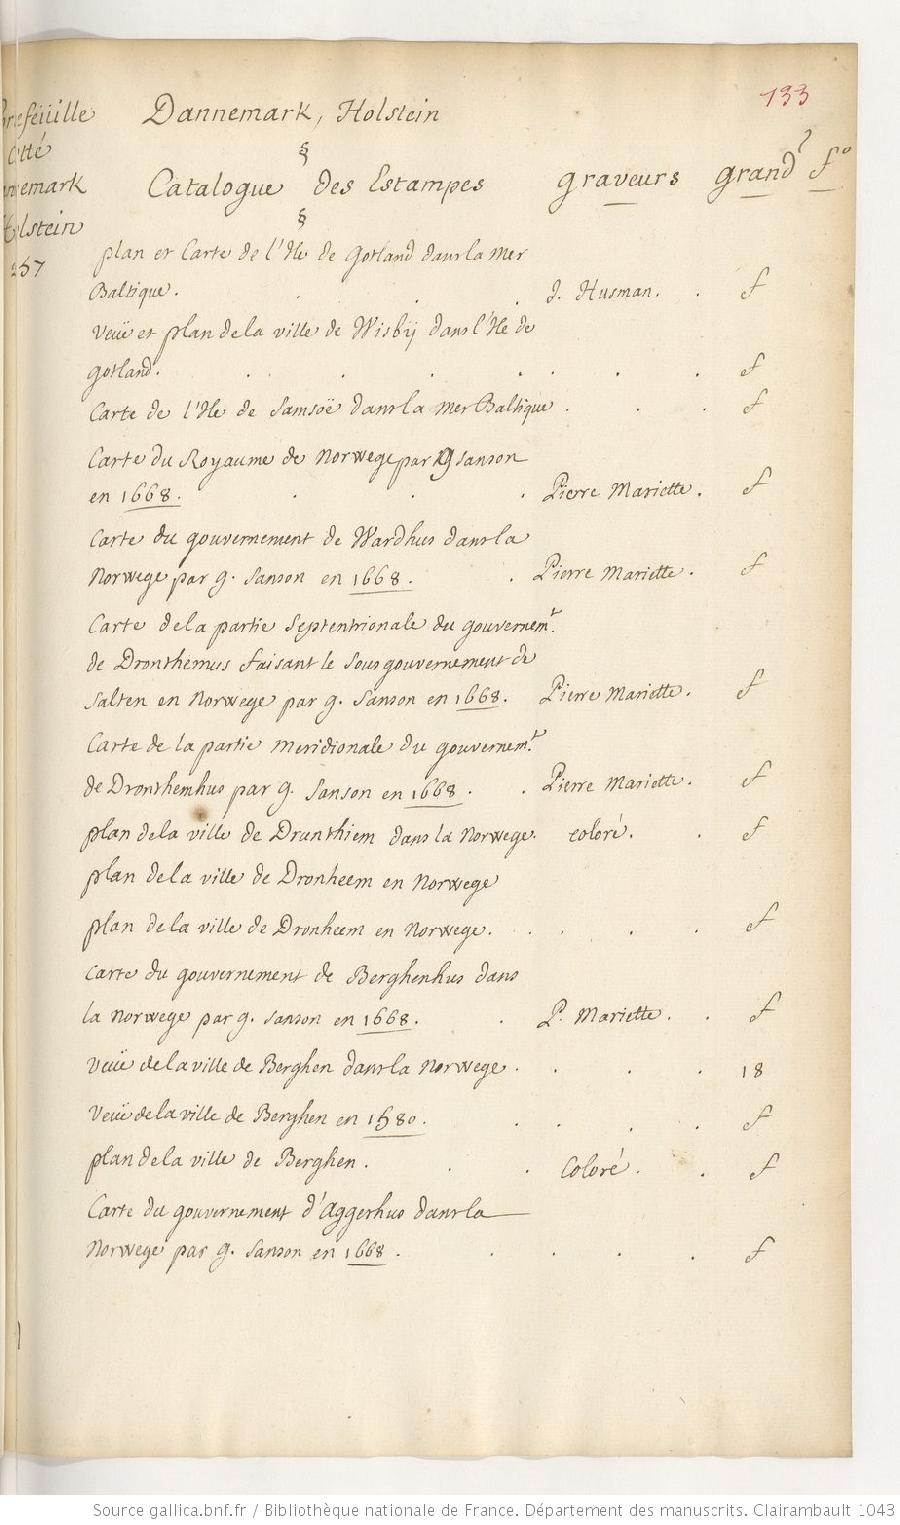 133
Dannemark, Holstein
§
Catalogue des Estampes graveurs grand f°
§
Cotté
257
plan et Carte de l'Ile de Gotland dans la Mer
Baltique. J. Husman. f
Veuë et plan de la ville de Wisbÿ dans l'Ile de
Gotland. f
Carte de l'Ile de Samsoë dans la Mer Baltique . f
Carte du Royaume de Norwege par g Sanson
en 1668. Pierre Mariette. f
Carte du gouvernement de Wardhus dans la
Norwege par g. Sanson en 1668. Pierre Mariette. f
Carte de la partie Septentrionale du gouvernem.t
de Dronthemus faisant le sous gouvernement de
Salten en Norwege par g. Sanson en 1668. Pierre Mariette. f
Carte de la partie meridionale du gouvernem.t
de Dronthemhus par g. Sanson en 1668. Pierre Mariette. f
plan de la ville de Drunthiem dans la Norwege. coloré. f
plan de la ville de Dronheem en Norwege
plan de la ville de Dronheem en Norwege. f
Carte du gouvernement de Berghenhus dans
la Norwege par g. Sanson en 1668. P. Mariette. f
Veuë de la ville de Berghen dans la Norwege. 18
Veuë de la ville de Berghen en 1580. f
plan de la ville de Berghen. Coloré. f
Carte du gouvernement d'Aggerhus dans la
Norwege par g. Sanson en 1668. f
Source gallica.bnf.fr / Bibliothèque nationale de France. Département des manuscrits. Clairambault 1043